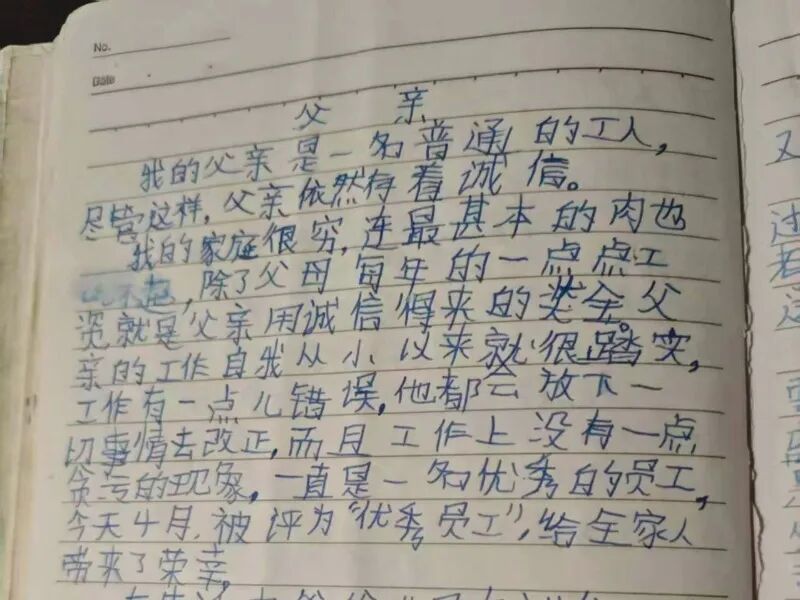 No.
Date
父 亲
我的父亲是一名普通的工人，
尽管这样，父亲依然存着诚信。
我的家庭很穷，连最基本的肉也
不起，除了父母每年的一点点工
资就是父亲用诚信得来的奖金。父
亲的工作自我从小以来就很踏实，
工作有一点儿错误，他都会放下一
切事情去改正，而且工作上没有一点
贪污的现象，一直是一名优秀的员工，
今天4月，被评为“优秀员工”，给全家人
带来了荣幸。
又
过
着
这